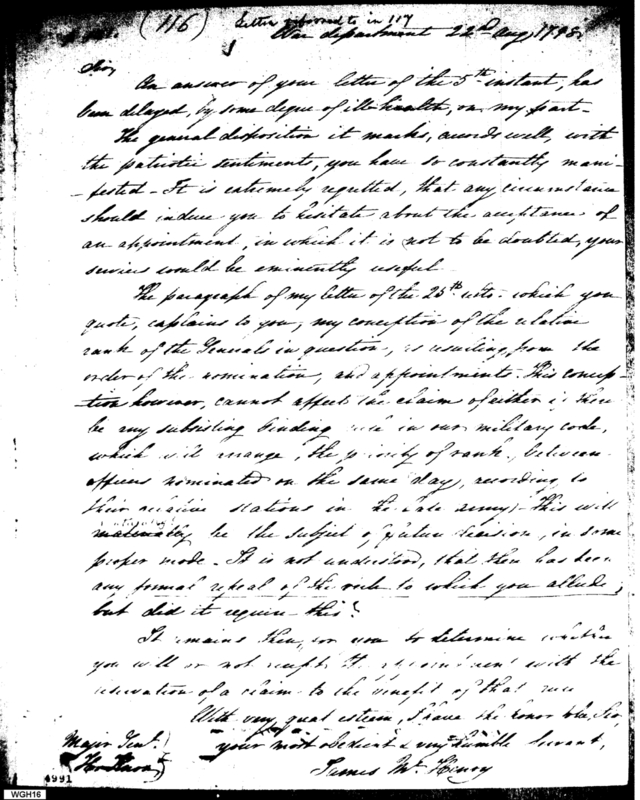 (116) Letter referred to in 117
War department 22d Aug 1798.
Sir,
An answer of your letter of the 5th instant, has
been delayed, by some degree of ill health, on my part-
The general disposition it marks, accords well, with
the patriotic sentiments, you have so constantly mani-
-fested- It is extremely regretted, that any circumstance
should induce you to hesitate about the acceptance of
an appointment, in which it is not to be doubted, your
services would be eminently useful
The paragraph of my letter of the 25th ulto. which you
quote, explains to you, my conception of the relative
rank of the Generals in question, as resulting from the
order of the nomination, and appointments. This concep-
-tion however, cannot affect the claim of either if there
be any subsisting binding rule in our military code,
which will change, the priority of rank, between
officers nominated on the same day, according to
their relative stations in the late army;- This will
be the subject of future decision, in some
proper mode- It is not understood, that there has been
any formal repeal of the rule to which you allude,
but did it require this?
It remains then, for you to determine whether
you will or not accept the appointment with the
reservation of a claim to the benefit of that rule
With very great esteem, I have the honor to be, Sir
your most obedient & very humble Servant,
James McHenry
Major Genl.
4991
WGH16